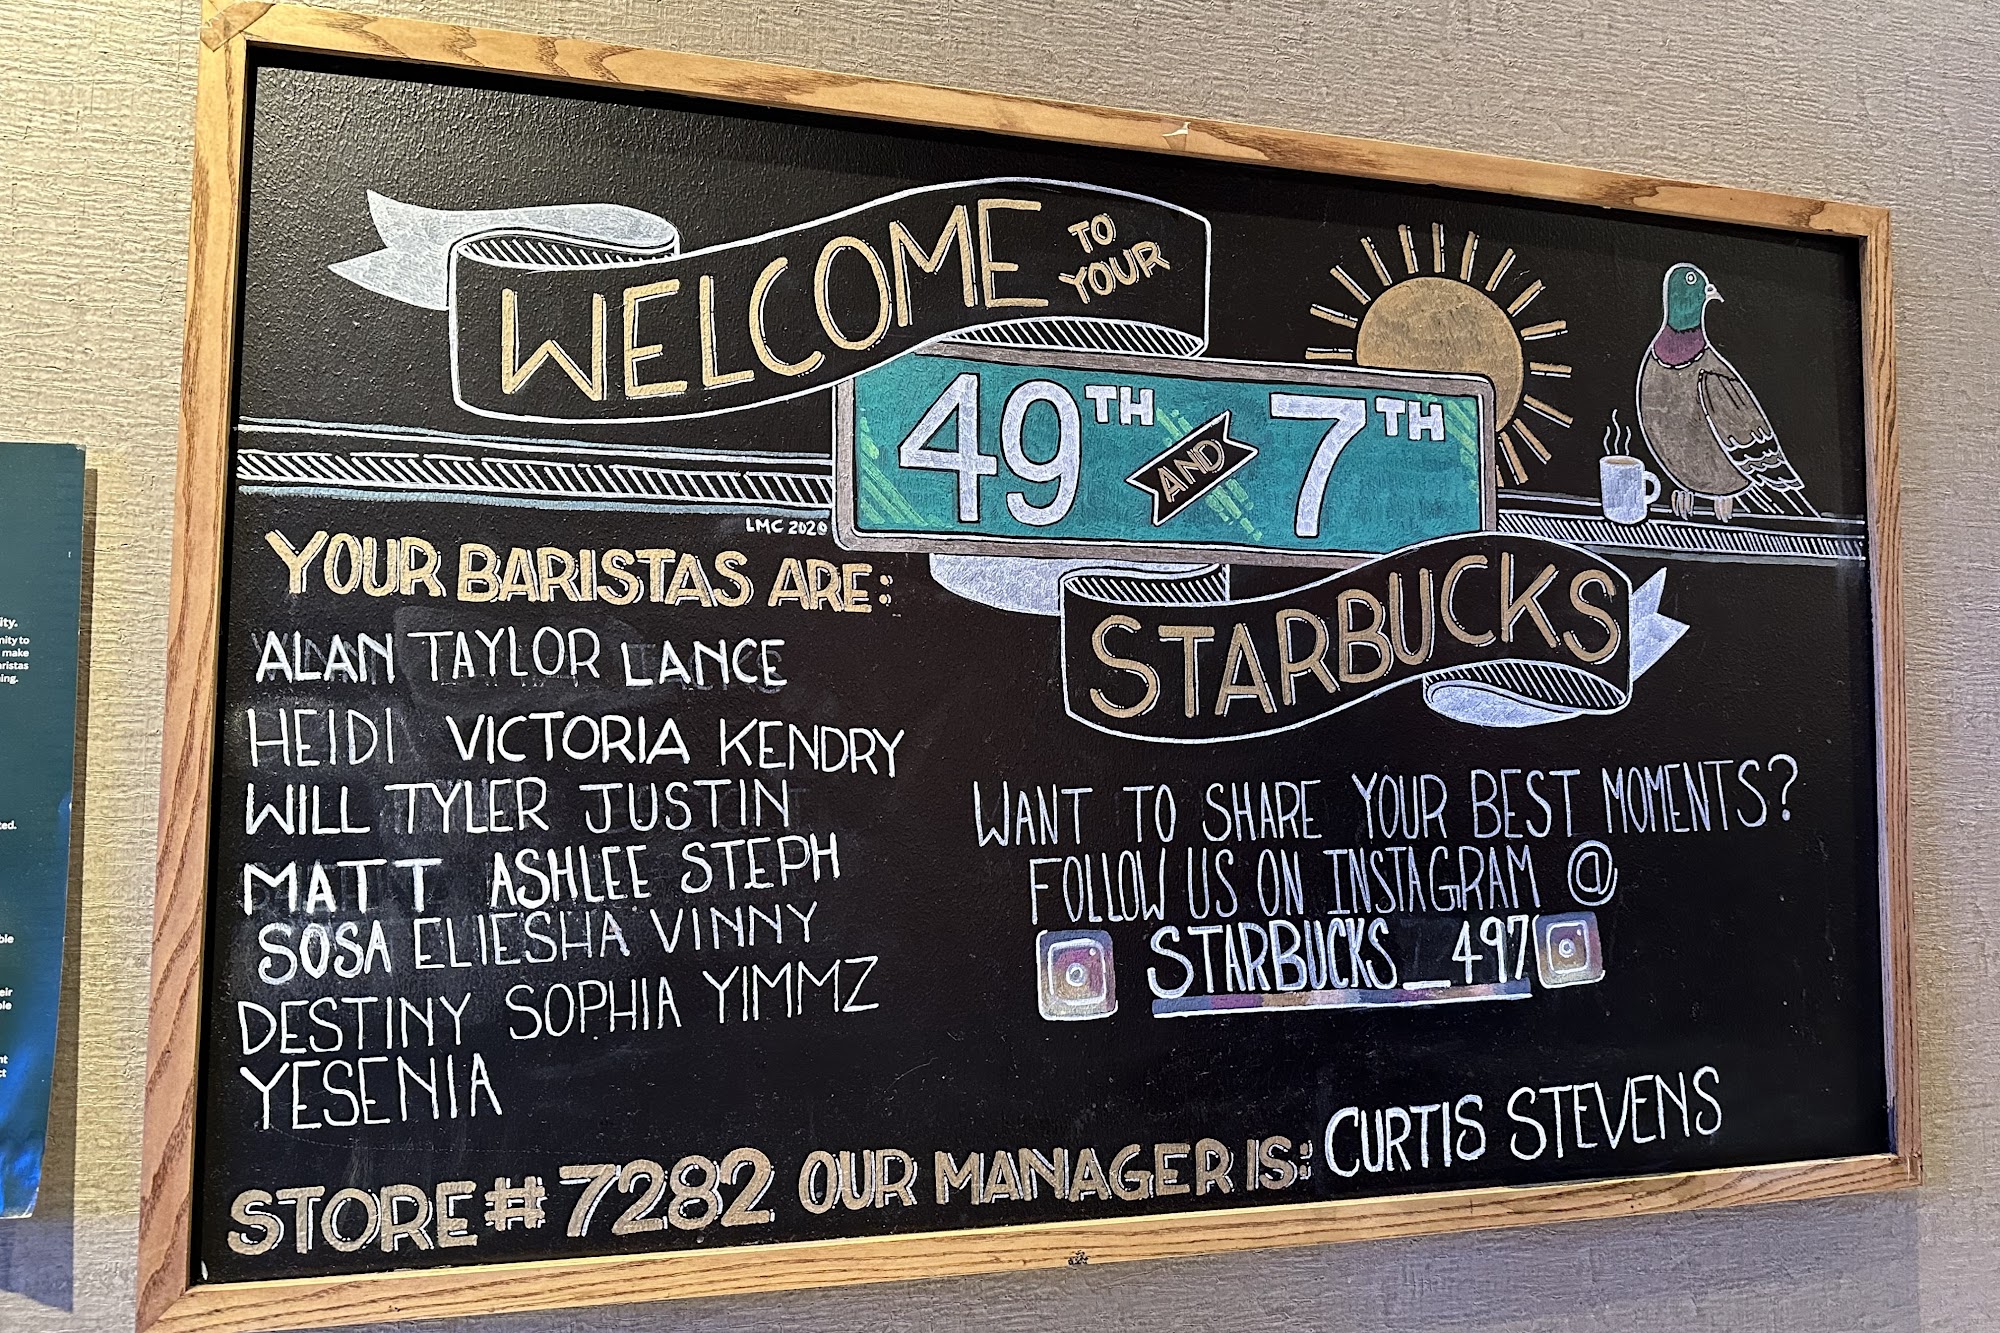 WELCOME TO YOUR
49TH AND 7TH
STARBUCKS
LMC 2020
YOUR BARISTAS ARE:
ALAN TAYLOR LANCE
HEIDI VICTORIA KENDRY
WILL TYLER JUSTIN
MATT ASHLEE STEPH
SOSA ELIESHA VINNY
DESTINY SOPHIA YIMMZ
YESENIA
WANT TO SHARE YOUR BEST MOMENTS?
FOLLOW US ON INSTAGRAM @
STARBUCKS_497
STORE # 7282 OUR MANAGER IS: CURTIS STEVENS
make